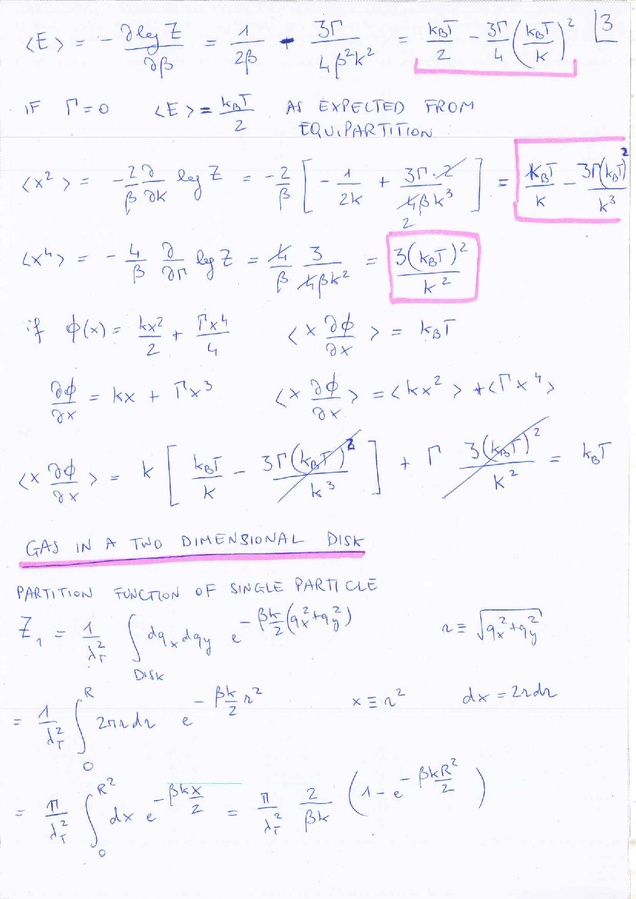 3
⟨E⟩ = - ∂log Z/∂β = 1/2β - 3Γ/4β²k² = k_BT/2 - 3Γ/4 (k_BT/k)²
IF Γ=0 ⟨E⟩ = k_BT/2 AS EXPECTED FROM
EQUIPARTITION
⟨x²⟩ = -2/β ∂/∂k log Z = -2/β [ -1/2k + 3Γ·2/4βk³ 2 ] = k_BT/k - 3Γ(k_BT)²/k³
⟨x⁴⟩ = -4/β ∂/∂Γ log Z = 4/β 3/4βk² = 3(k_BT)²/k²
if ϕ(x) = kx²/2 + Γx⁴/4 ⟨x ∂ϕ/∂x⟩ = k_BT
∂ϕ/∂x = kx + Γx³ ⟨x ∂ϕ/∂x⟩ = ⟨kx²⟩ + ⟨Γx⁴⟩
⟨x ∂ϕ/∂x⟩ = k [ k_BT/k - 3Γ(k_BT)²/k³ ] + Γ 3(k_BT)²/k² = k_BT
GAS IN A TWO DIMENSIONAL DISK
PARTITION FUNCTION OF SINGLE PARTICLE
Z₁ = 1/λ_T² ∫_DISK dq_x dq_y e^{-βk/2 (q_x²+q_y²)} r ≡ √(q_x²+q_y²)
= 1/λ_T² ∫_0^R 2πr dr e^{-βk/2 r²} x ≡ r² dx = 2rdr
= π/λ_T² ∫_0^{R²} dx e^{-βkx/2} = π/λ_T² 2/βk (1 - e^{-βkR²/2})